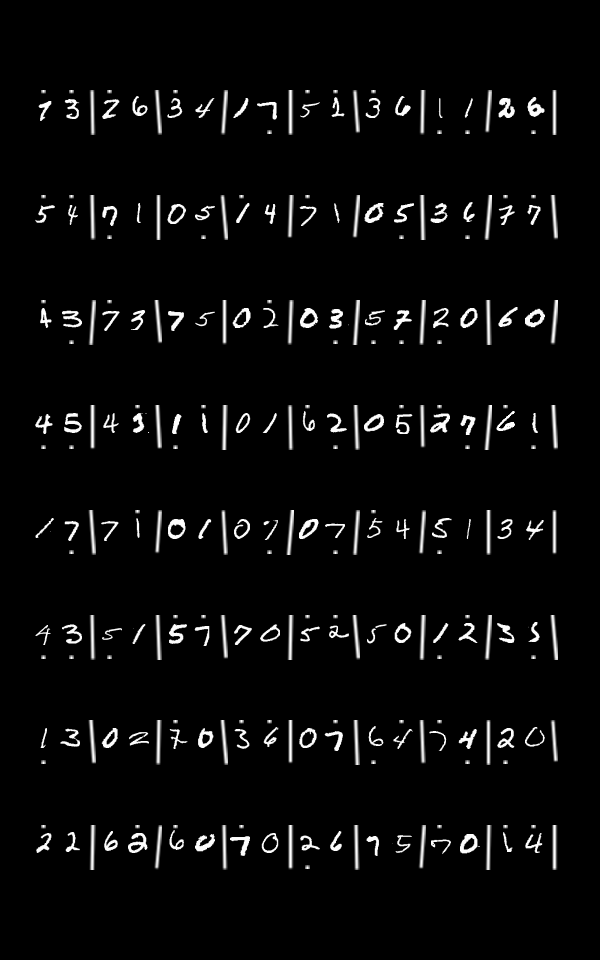 7 3 | 2 6 | 3 4 | 1 7 | 5 1 | 3 6 | 1 1 | 2 6 |
5 4 | 7 1 | 0 5 | 1 4 | 7 1 | 0 5 | 3 6 | 7 7 |
4 3 | 7 3 | 7 5 | 0 2 | 0 3 | 5 7 | 2 0 | 6 0 |
4 5 | 4 3 | 1 1 | 0 1 | 6 2 | 0 5 | 2 7 | 6 1 |
1 7 | 7 1 | 0 1 | 0 7 | 0 7 | 5 4 | 5 1 | 3 4 |
4 3 | 5 1 | 5 7 | 7 0 | 5 2 | 5 0 | 1 2 | 3 5 |
1 3 | 0 2 | 7 0 | 3 6 | 0 7 | 6 4 | 7 4 | 2 0 |
2 2 | 6 2 | 6 0 | 7 0 | 2 6 | 7 5 | 7 0 | 1 4 |